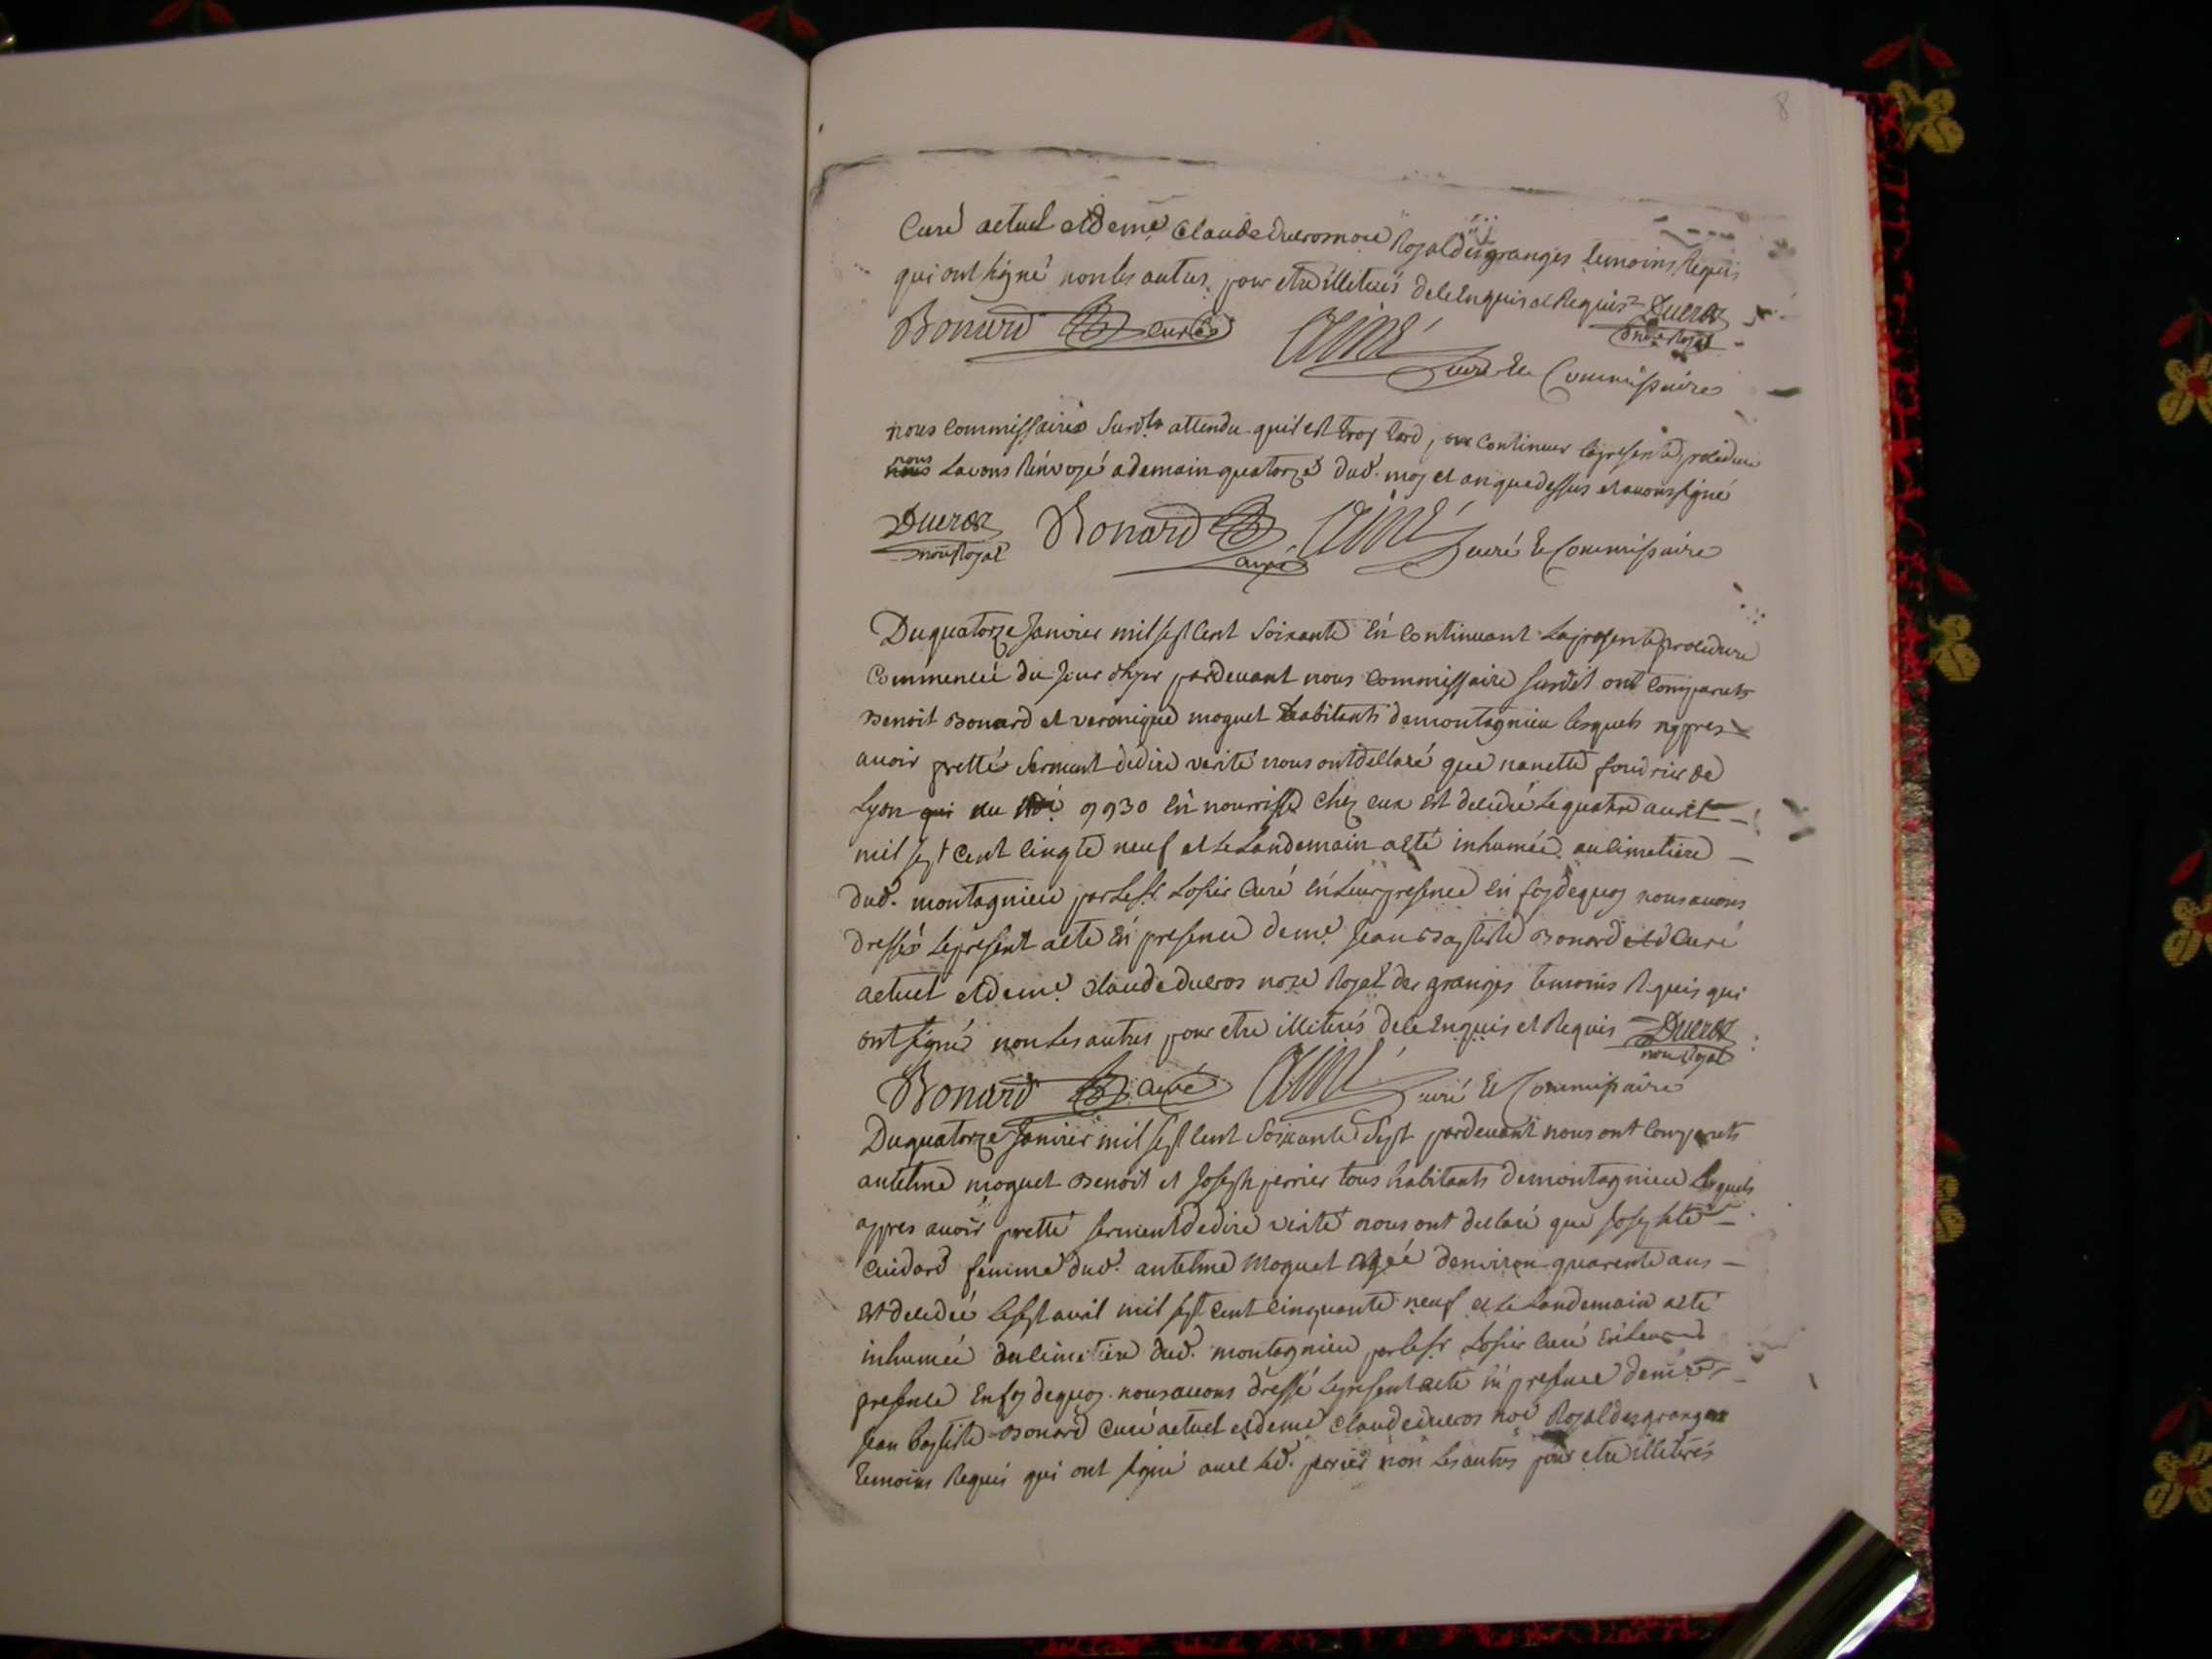 8
Curé actuel et de me Claude Ducros nore Royal des granges temoins Requis
qui ont signé non les autres pour etre illiterés de ce Enquis et Requis Ducros
nore Royal
Bonard curé
Aimé curé Et Commissaire
nous Commissaires susdts attendu quil est trop tard, pour Continuer la presente procedure
nous Lavons Renvoyé a demain quatorze dud. moy et an que dessus et avons signé
Ducros Bonard Aimé curé Et Commissaire
nore Royal curé
Du quatorze Janvier mil sept Cent Soixante En Continuant La presente procedure
Commencée du Jour dhyer pardevant nous Commissaire susdit ont Comparuts
Benoit Bonard et veronique moguet habitants de montagnieu lesquels appres
avoir pretté serment de dire verité nous ont declaré que nanette foudrier de
Lyon qui au 9930 En nourrisse chez eux Est decedée Le quatre avril
mil sept Cent cinqte neuf et Le Landemain a eté inhumée au cimetiere
dud. montagnieu par Le Sr. Losier Curé En Leur presence En foy de quoy nous avons
dressés Le present acte En presence de me Jean Baptiste Bonard Curé
actuel et de me Claude Ducros nore Royal des granges temoins Requis qui
ont signé non Les autres pour etre illiterés de ce Enquis et Requis Ducros
nore Royal
Bonard curé Aimé curé Et Commissaire
Du quatorze Janvier mil sept Cent Soixante Sept pardevant nous ont Comparuts
antelme moguet Benoit et Joseph perrier tous habitants de montagnieu Lesquels
appres avoir pretté serment de dire verité nous ont declaré que Josephte
Cuidard femme dud. antelme Moguet agée denviron quarente ans
Est decedée Le sept avril mil sept Cent Cinquante neuf et Le Landemain a eté
inhumée au cimetiere dud. montagnieu par le Sr Losier Curé En Leur
presence En foy de quoy nous avons dressé Le present acte En presence de me
Jean Baptiste Bonard Curé actuel et de me Claude Ducros nore Royal des granges
temoins Requis qui ont signé avec Led. perrier non Les autres pour etre illiterés